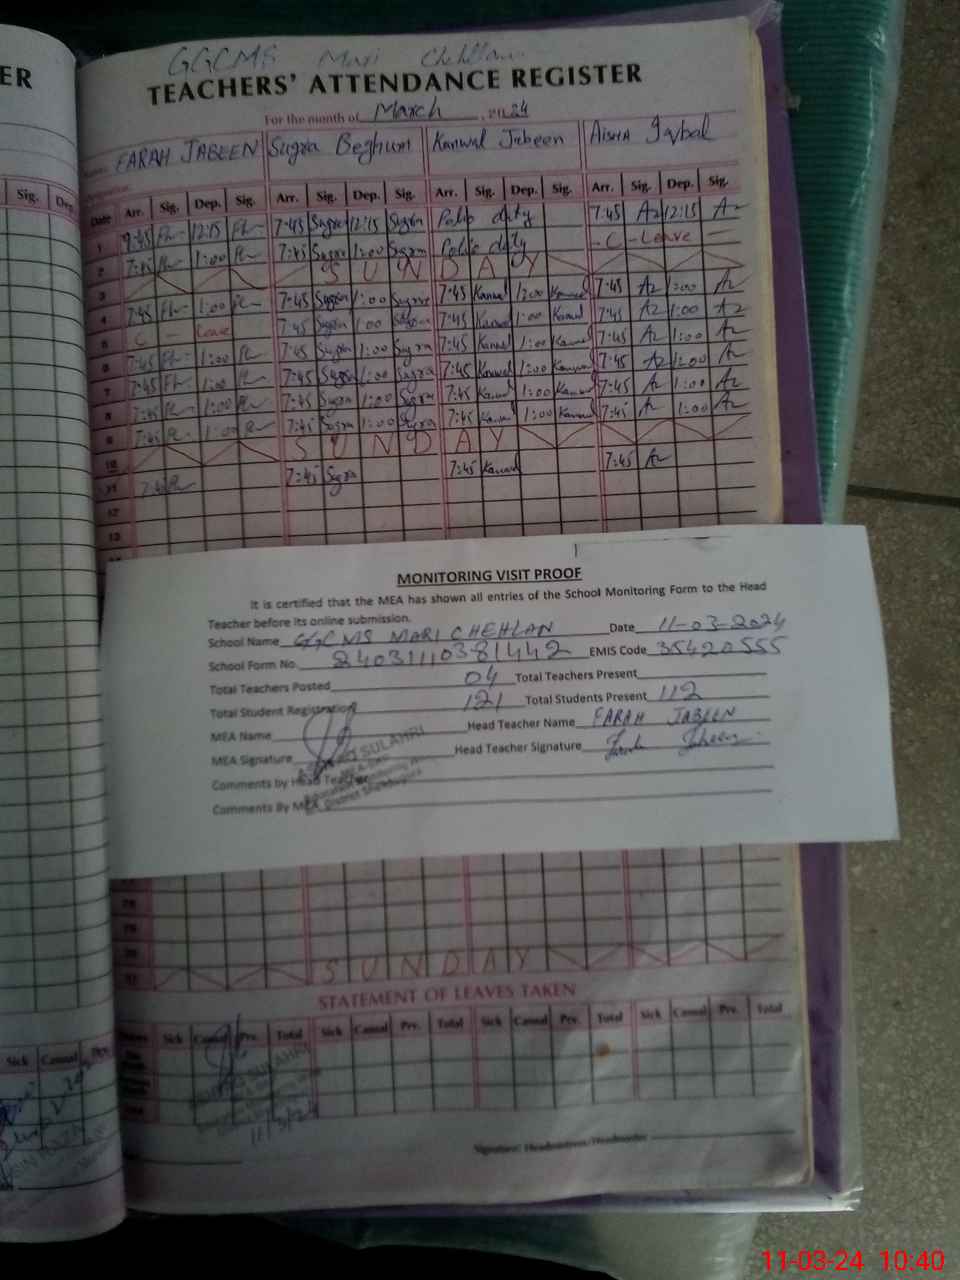 ER
GGCMS Mari Chehlan
TEACHERS' ATTENDANCE REGISTER
For the month of March, 2024
FARAH JABEEN Sugra Beghum Kanwal Jabeen Aisha Iqbal
Sig. Dep. Date Arr. Sig. Dep. Sig. Arr. Sig. Dep. Sig. Arr. Sig. Dep. Sig. Arr. Sig. Dep. Sig.
1 7:45 12:15 7:45 Sugra 12:15 Sugra Polio duty 7:45 Az 12:15 Az
2 7:45 1:00 7:45 Sugra 1:00 Sugra Polio duty C - Leave
3 SUNDAY
4 7:45 1:00 7:45 Sugra 1:00 Sugra 7:45 Kanwal 1:00 Kanwal 7:45 Az 1:00 Az
5 C - Leave 7:45 Sugra 1:00 Sugra 7:45 Kanwal 1:00 Kanwal 7:45 Az 1:00 Az
6 7:45 1:00 7:45 Sugra 1:00 Sugra 7:45 Kanwal 1:00 Kanwal 7:45 Az 1:00 Az
7 7:45 1:00 7:45 Sugra 1:00 Sugra 7:45 Kanwal 1:00 Kanwal 7:45 Az 1:00 Az
8 7:45 1:00 7:45 Sugra 1:00 Sugra 7:45 Kanwal 1:00 Kanwal 7:45 Az 1:00 Az
9 7:45 1:00 7:45 Sugra 1:00 Sugra 7:45 Kanwal 1:00 Kanwal 7:45 Az 1:00 Az
10 SUNDAY
11 7:45 7:45 Sugra 7:45 Kanwal 7:45 Az
12
13
MONITORING VISIT PROOF
It is certified that the MEA has shown all entries of the School Monitoring Form to the Head
Teacher before its online submission.
School Name GGCMS MARI CHEHLAN Date 11-03-2024
School Form No. 24031110381442 EMIS Code 35420555
Total Teachers Posted 04 Total Teachers Present
Total Student Registration 121 Total Students Present 112
MEA Name Head Teacher Name FARAH JABEEN
MEA Signature Head Teacher Signature Farah Jabeen
SULAHRI
Comments by Head Teacher
Comments By MEA
District Sheikhupura
28
29
30
31 SUNDAY
STATEMENT OF LEAVES TAKEN
Sick Casual Prv. Sick Casual Prv. Total Sick Casual Prv. Total Sick Casual Prv. Total Sick Casual Prv. Total
SULAHRI
11/3/24
Signature: Headmistress/Headmaster
11-03-24 10:40